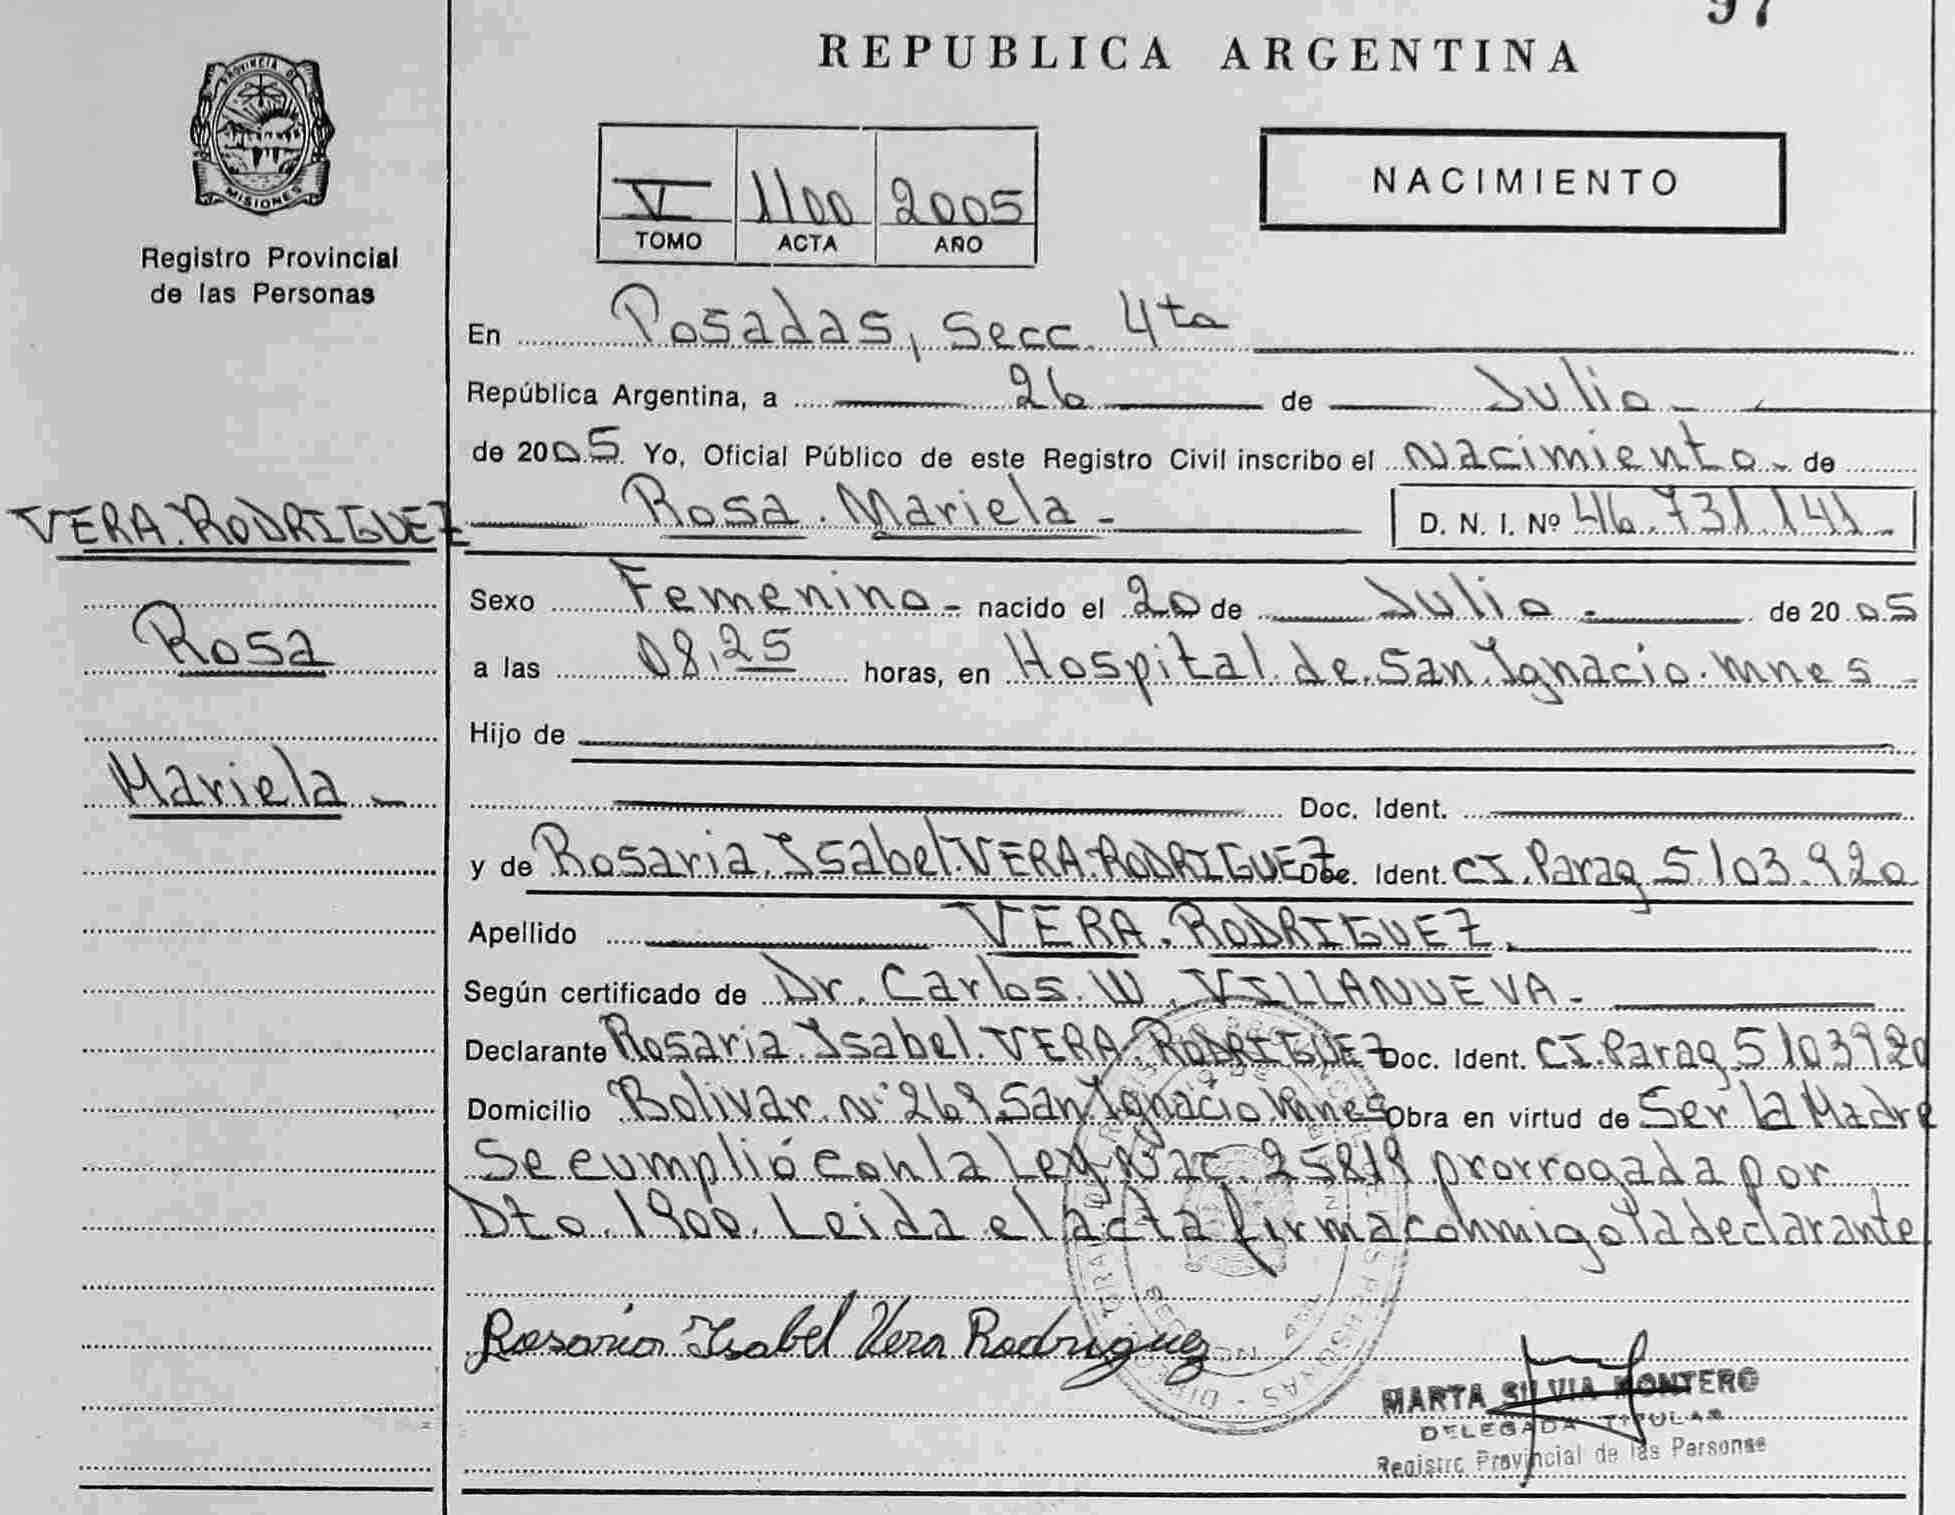 97
REPUBLICA ARGENTINA
PROVINCIA DE
MISIONES
Registro Provincial
de las Personas
V 1100 2005
TOMO ACTA AÑO
NACIMIENTO
En Posadas, Secc. 4ta
República Argentina, a 26 de Julio
de 2005 Yo, Oficial Público de este Registro Civil inscribo el nacimiento de
VERA RODRIGUEZ
Rosa Mariela D. N. I. Nº 46.731.141
Sexo Femenino nacido el 20 de Julio de 2005
Rosa
a las 08,25 horas, en Hospital de San Ignacio. Mnes
Hijo de
Mariela
Doc. Ident.
y de Rosaria Isabel VERA RODRIGUEZ Doc. Ident. CI. Parag 5103.920
Apellido VERA RODRIGUEZ
Según certificado de Dr. Carlos W. VILLANUEVA
Declarante Rosaria Isabel VERA RODRIGUEZ Doc. Ident. CI. Parag 5103920
Domicilio Bolivar nº 269 San Ignacio Mnes Obra en virtud de Ser la Madre
Se cumplió con la Ley Nac. 25819 prorrogada por
Dto. 1900. Leida el acta firma conmigo la declarante
Rosaria Isabel Vera Rodriguez
MARTA SILVIA MONTERO
DELEGADA TITULAR
Registro Provincial de las Personas